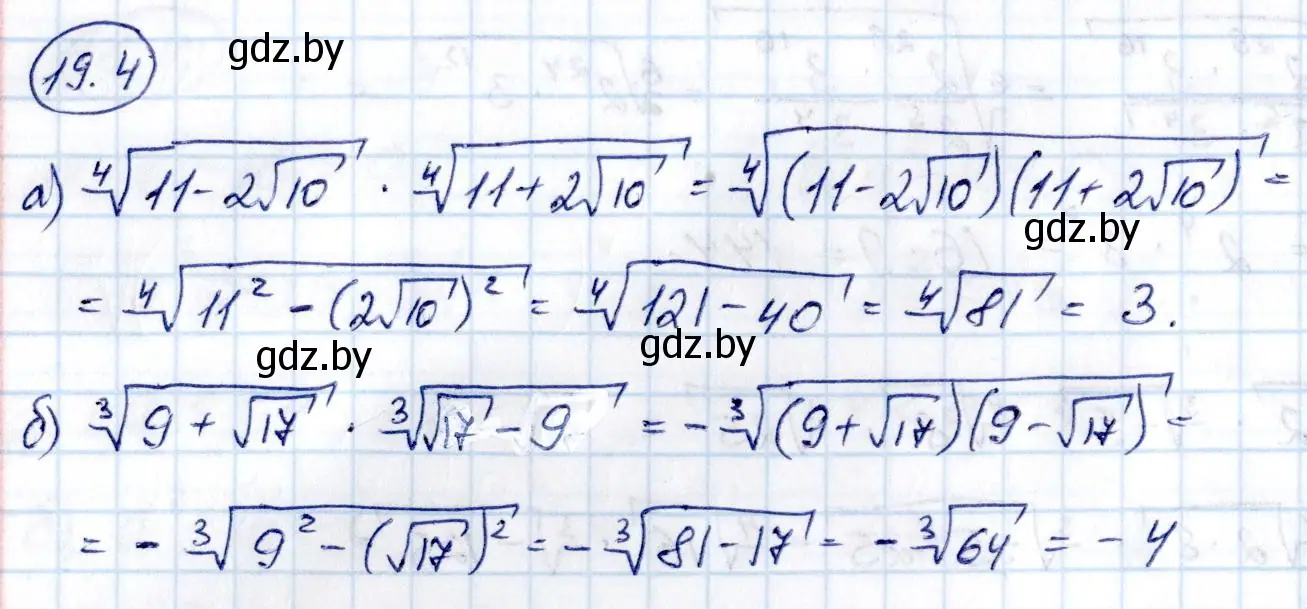 19.4
gdz.by
а) ⁴√(11-2√10) · ⁴√(11+2√10) = ⁴√((11-2√10)(11+2√10)) =
gdz.by
= ⁴√(11² - (2√10)²) = ⁴√(121-40) = ⁴√81 = 3.
gdz.by gdz.by
б) ³√(9+√17) · ³√(√17-9) = -³√((9+√17)(9-√17)) =
= -³√(9²-(√17)²) = -³√(81-17) = -³√64 = -4